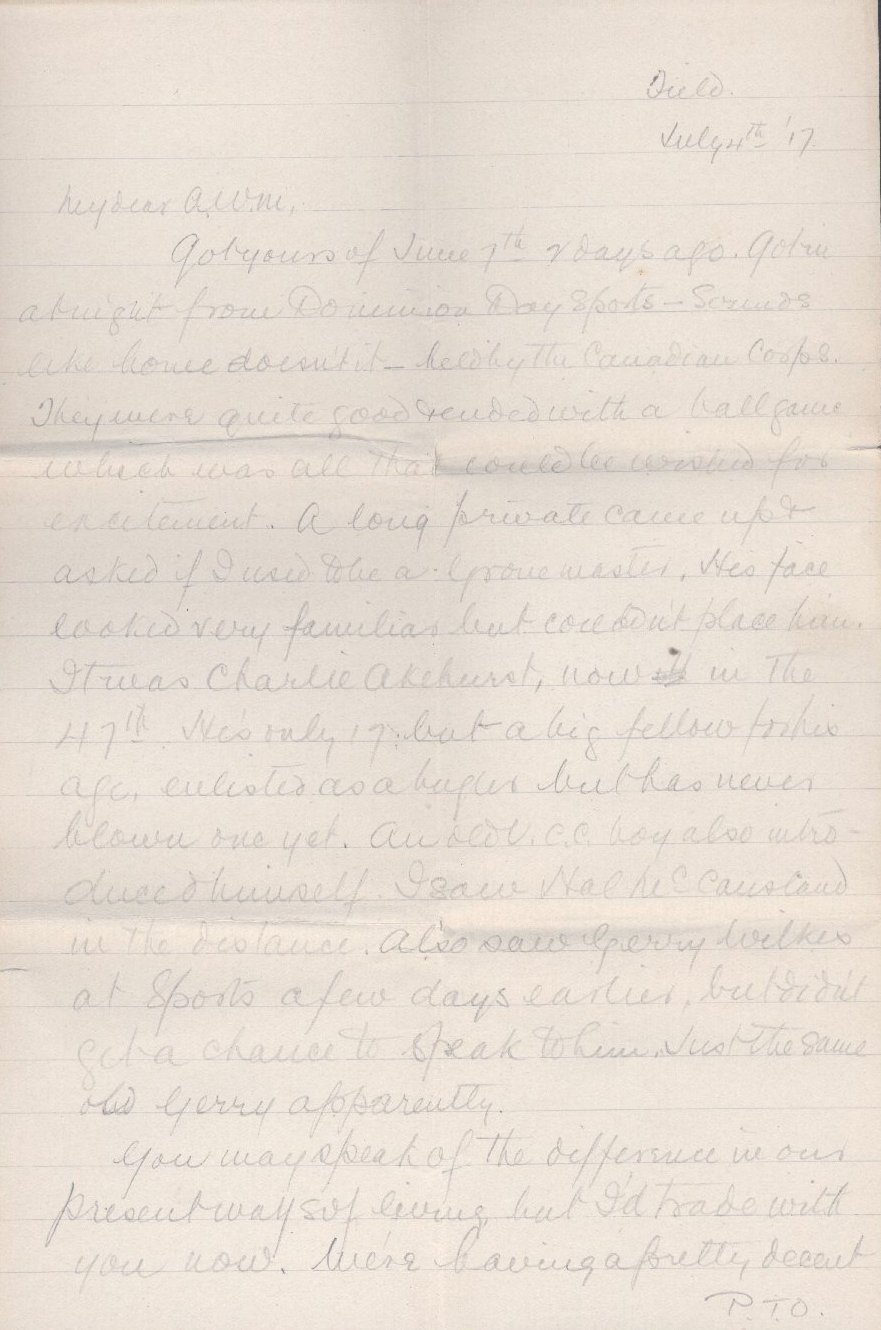 Field.
July 4th '17.
My dear A.W.M.,
Got yours of June 7th 2 days ago. Got in
at night from Dominion Day Sports – Sounds
like home doesn't it – held by the Canadian Corps.
They were quite good & ended with a ball game
which was all that could be wished for
excitement. A long private came up &
asked if I used to be a Grove master. His face
looked very familiar but couldn't place him.
It was Charlie Akehurst, now in the
47th. He's only 17, but a big fellow for his
age, enlisted as a bugler but has never
blown one yet. An old U.C.C. boy also intro-
duced himself. I saw Hal McCausland
in the distance. Also saw Gerry Wilkes
at Sports a few days earlier, but didn't
get a chance to speak to him. Just the same
old Gerry apparently.
You may speak of the difference in our
present ways of living, but I'd trade with
you now. We're having a pretty decent
P.T.O.